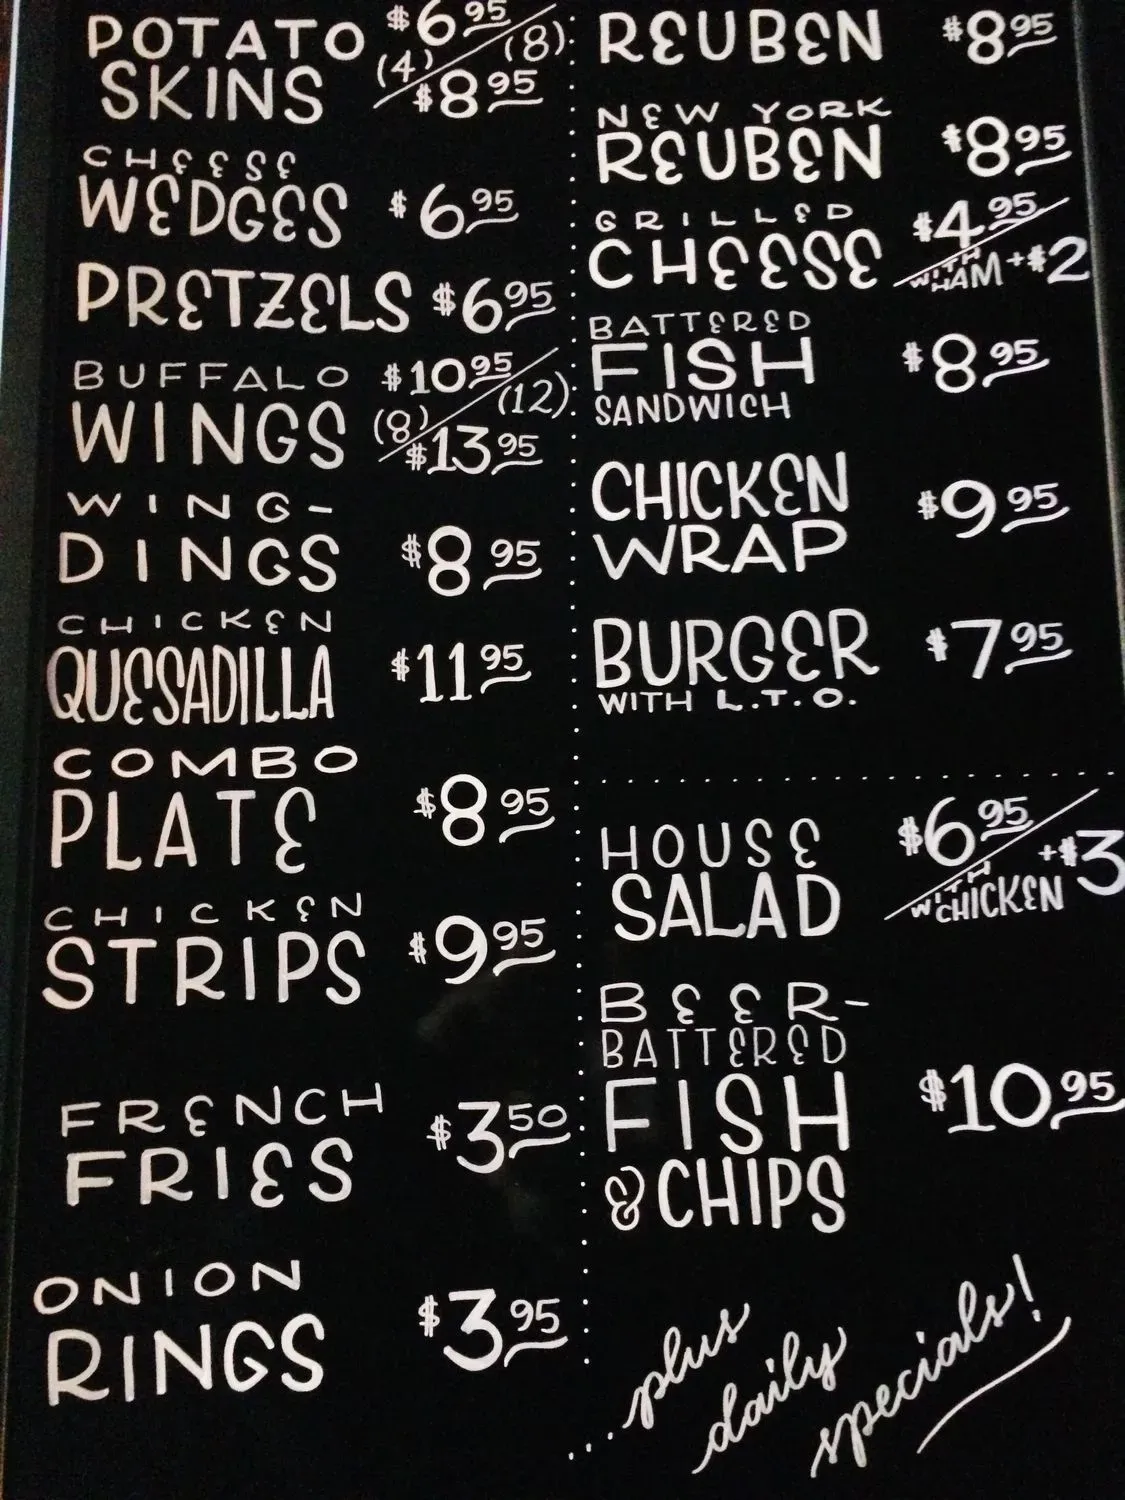 POTATO $6.95 (8)
SKINS (4) $8.95
CHEESE
WEDGES $6.95
PRETZELS $6.95
BUFFALO $10.95 (12)
WINGS (8) $13.95
WING-
DINGS $8.95
CHICKEN
QUESADILLA $11.95
COMBO
PLATE $8.95
CHICKEN
STRIPS $9.95
FRENCH
FRIES $3.50
ONION
RINGS $3.95
REUBEN $8.95
NEW YORK
REUBEN $8.95
GRILLED
CHEESE $4.95
WITH HAM +$2
BATTERED
FISH $8.95
SANDWICH
CHICKEN
WRAP $9.95
BURGER $7.95
WITH L.T.O.
HOUSE $6.95
SALAD WITH CHICKEN +$3
BEER-
BATTERED
FISH $10.95
& CHIPS
...plus
daily
specials!